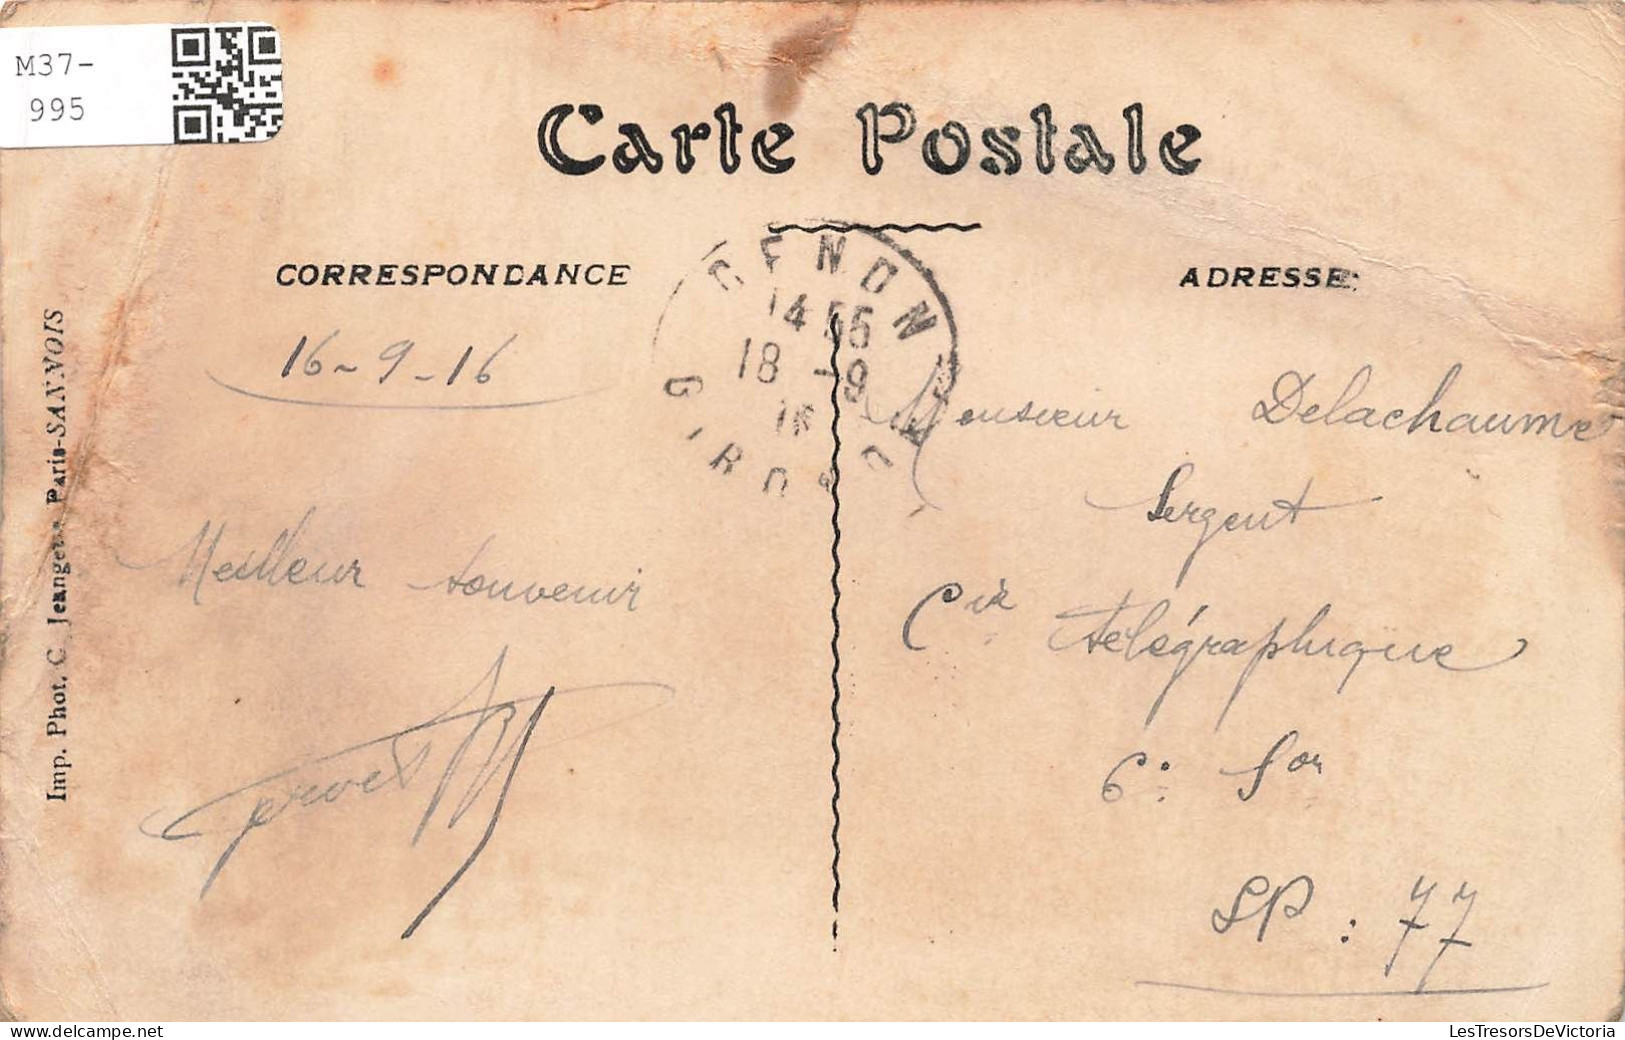 M37-
995
Carte Postale
CORRESPONDANCE
ADRESSE:
CENON
14 55
18 -9
16
GIRONDE
16-9-16
Meilleur souvenir
Monsieur Delachaume
Sergent
Cie télégraphique
6: Son
SP: 77
Imp. Phot. C. Jeangette Paris-SANNOIS
LesTresorsDeVictoria